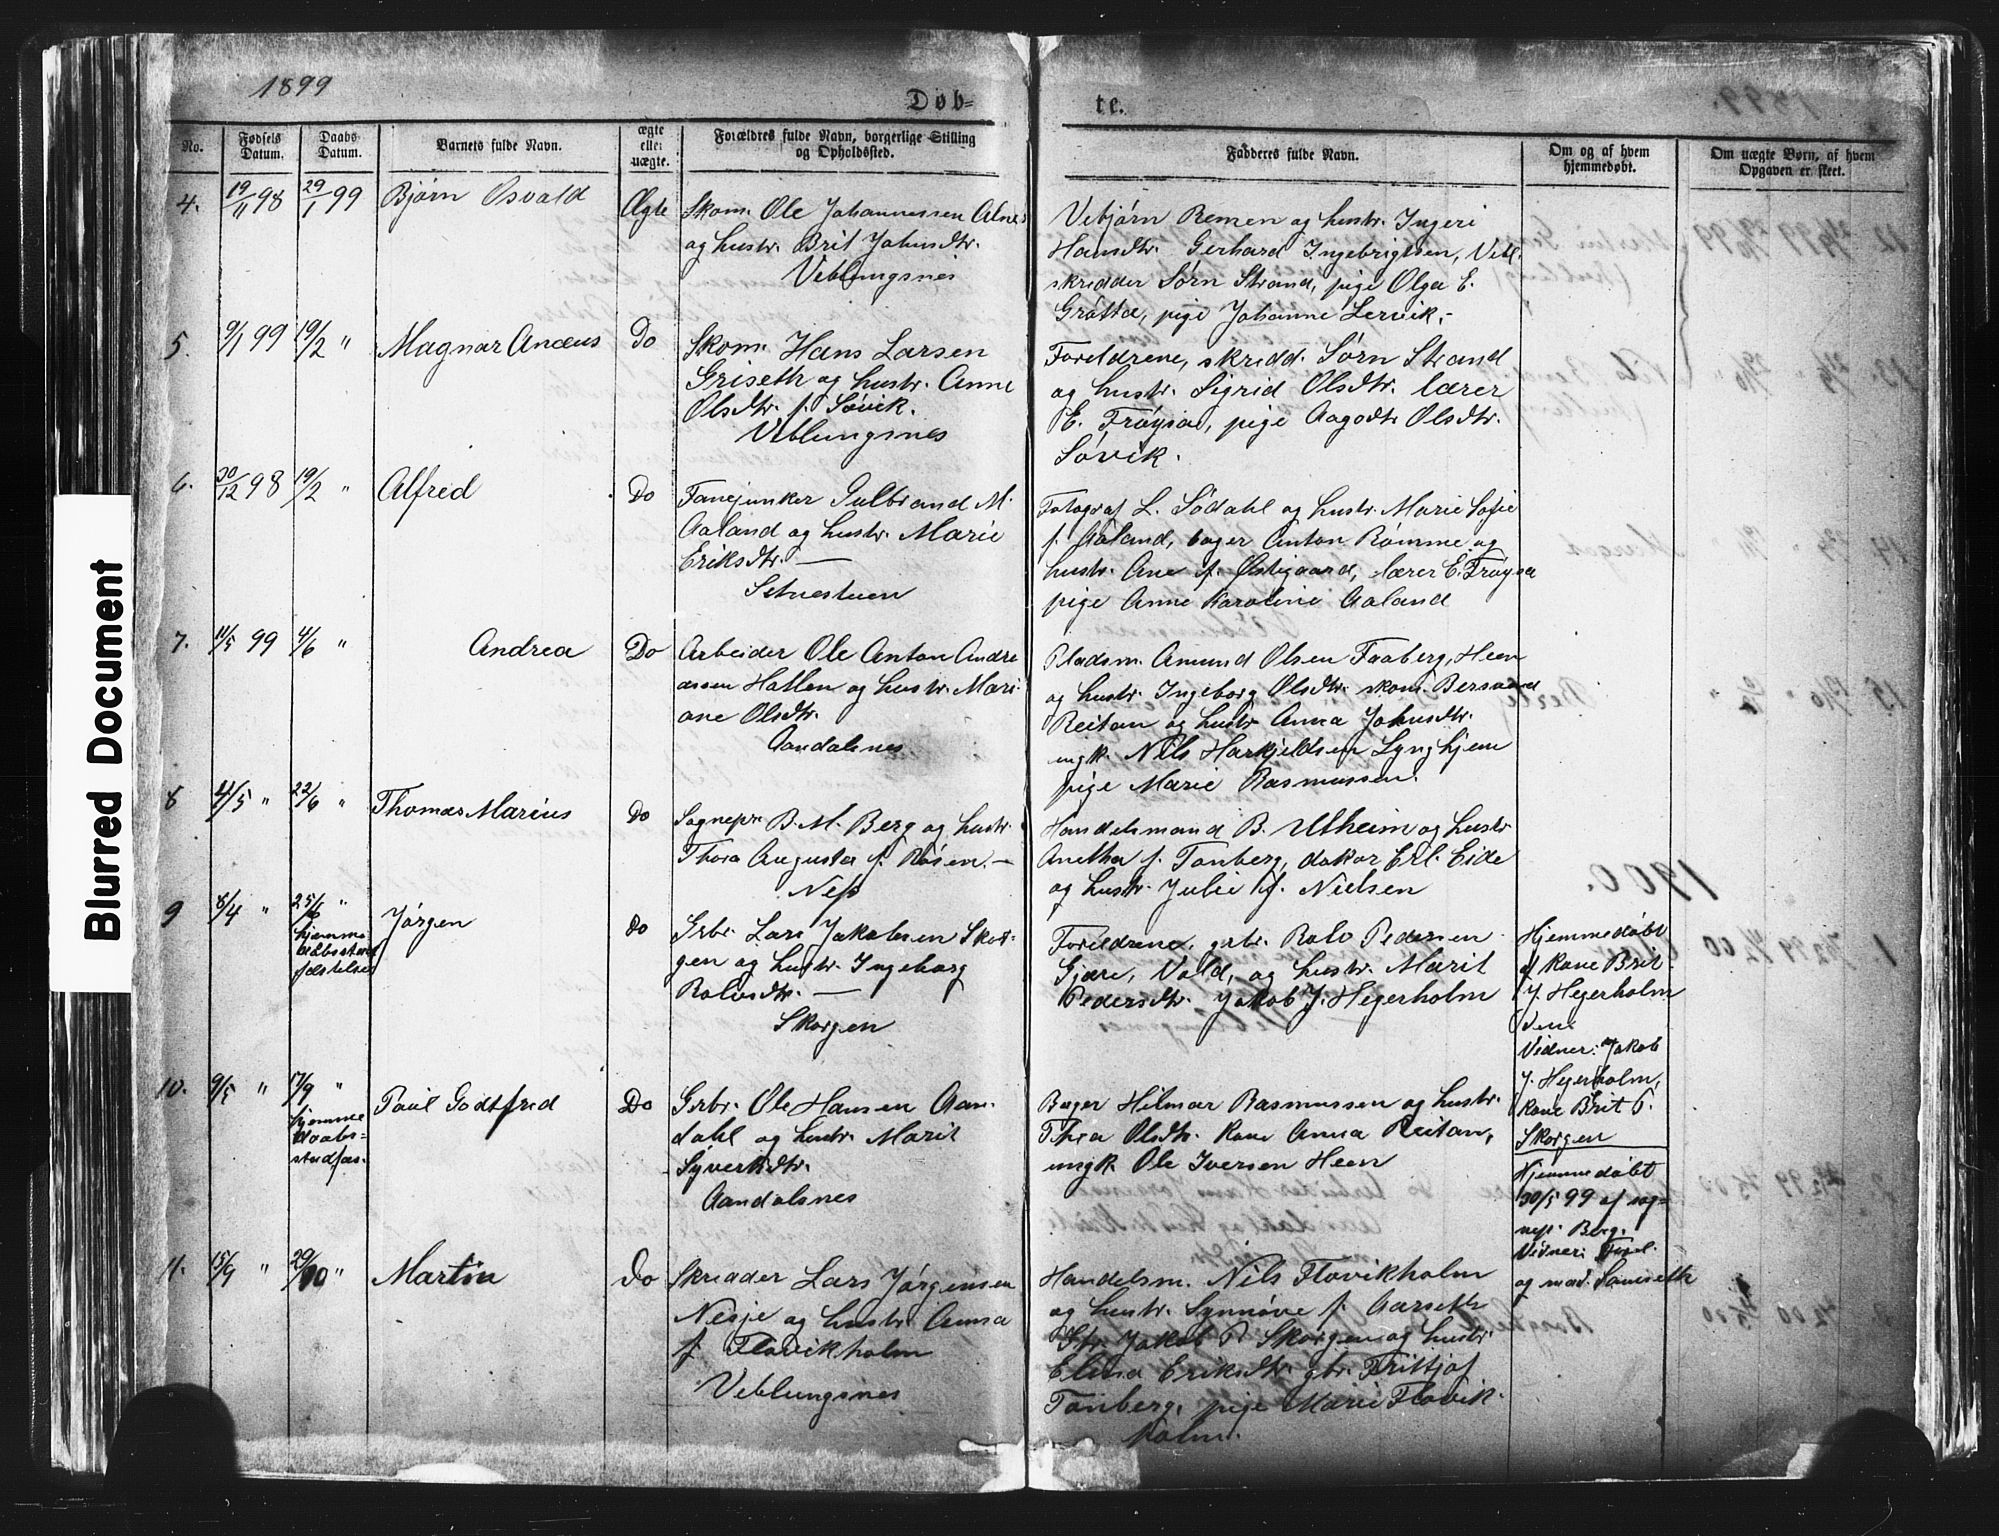 1899
Døb-
te.
No.
Fødsels Datum.
Daabs Datum.
Barnets fulde Navn.
ægte eller uægte.
Forældres fulde Navn, borgerlige Stilling og Opholdssted.
Fadderes fulde Navn.
Om og af hvem hjemmedøbt.
Om uægte Børn, af hvem Opgaven er skeet.
4. 19/11 98 29/1 99 Bjørn Osvald Ægte
Skom. Ole Johannessen Alnes
og hustr. Brit Johnsdtr.
Veblungsnes
Vebjørn Remen og hustr. Ingeri
Hansdtr. Gerhard Ingebrigtsen, Vebl.
skredder Sørn Strand, pige Olga E.
Grøtta, pige Johanne Lervik.
5. 9/1 99 19/2 " Magnar Anæus Do
Skom. Hans Larsen
Griseth og hustr. Anne
Olsdtr. f. Søvik.
Veblungsnes
Foreldrene, skredd. Sørn Strand
og hustr. Sigrid Olsdtr. lærer
E. Frøysa, pige Aagodt Olsdtr.
Søvik.
6. 30/12 98 19/2 " Alfred Do
Fanejunker Gulbrand M.
Aaland og hustr. Marie
Eriksdtr. —
Setnestuen
Fotograf L. Sødahl og hustr. Marie Sofie
f. Aaland, bager Anton Rømme og
hustr. Ane f. Østigaard, lærer E. Frøysa
pige Anne Karoline Aaland
7. 11/5 99 4/6 " Andrea Do
Arbeider Ole Anton Andre
assen Hatlen og hustr. Mari
ane Olsdtr.
Aandalsnes.
Pladsm. Amund Olsen Faaberg, Heen
og hustr. Ingeborg Olsdtr. skom. Bersvend
Reitan og hustr Anna Johnsdtr.
ungk. Nils Harkjeldsen Lyngheim
pige Marie Rasmussen.
8 4/5 " 22/6 " Thomas Marius Do
Sognepr B. M. Berg og hustr.
Thora Augusta f. Rosen. —
Ness
Handelsmand B. Utheim og hustr
Anetha f. Tønberg, doktor Erl. Eide
og hustr. Julie f. Nielsen
9 8/4 " 25/6 "
hjemme
daabsstad
fæstelses
Jørgen Do
Grbr. Lars Jakobsen Skor-
gen og hustr. Ingeborg
Rolvsdtr. —
Skorgen
Foreldrene, grbr. Rolv Pedersen
Gjære, Vold, og hustr. Marit
Pedersdtr. Jakob J. Hegerholm
Hjemmedøbt
af Kone Brit
J. Hegerholm
den
Vidner: Jakob
J. Hegerholm,
Kone Brit P.
Skorgen
10. 9/5 " 17/9 "
hjemme
daabs-
stadfæs.
Paul Godtfred Do
Grbr. Ole Hansen Aan-
dahl og hustr. Marit
Syvertsdtr.
Aandalsnes
Bager Hilmar Rasmussen og hustr.
Thea Olsdtr. Kone Anna Reitan,
ungk. Ole Iversen Heen
Hjemmedøbt
30/5 99 af sog-
nepr. Berg.
Vidner: Forel.
og mad.
11. 15/9 " 29/10 " Martin Do
Skredder Lars Jørgensen
Nesje og hustr Anna
f. Flovikholm
Veblungsnes
Handelsm. Nils Flovikholm
og hustr. Synnøve f. Aarseth
Gbr. Jakob P. Skorgen og hustr.
Elina Eriksdtr. gbr. Frittjof
Tønberg, pige Marie Flovik-
holm.
1900.
Blurred Document